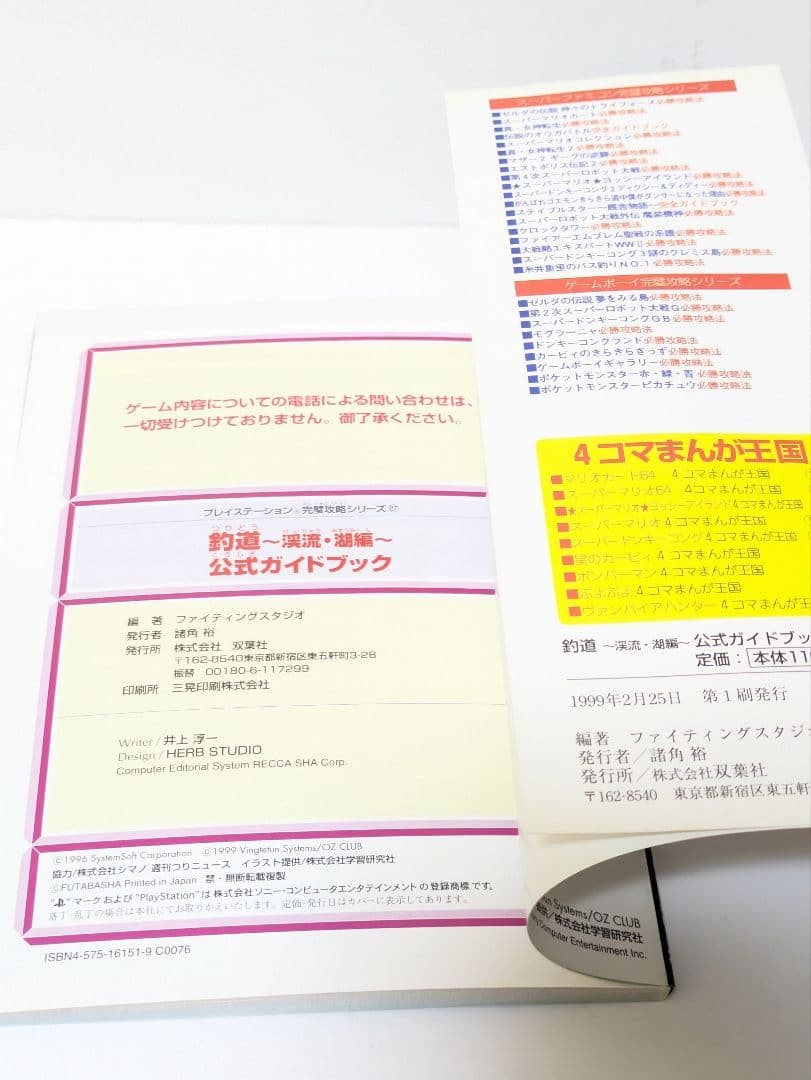 ゲーム内容についての電話による問い合わせは、
一切受けつけておりません。御了承ください。
プレイステーション®完璧攻略シリーズ 87
つりどう けいりゅう みずうみへん
釣道〜渓流・湖編〜
こうしき
公式ガイドブック
編 著 ファイティングスタジオ
発行者 諸角 裕
発行所 株式会社 双葉社
〒162-8540東京都新宿区東五軒町3-28
振替 00180-6-117299
印刷所 三晃印刷株式会社
Writer / 井上 淳一
Design / HERB STUDIO
Computer Editorial System RECCA SHA Corp.
©1996 SystemSoft Corporation ©1999 Vingletun Systems/OZ CLUB
協力/株式会社シマノ 週刊つりニュース イラスト提供/株式会社学習研究社
©FUTABASHA Printed in Japan 禁・無断転載複製
" "マークおよび"PlayStation"は株式会社ソニー・コンピュータエンタテインメントの登録商標です。
落丁・乱丁の場合は本社にてお取りかえいたします。定価・発行日はカバーに表示してあります。
ISBN4-575-16151-9 C0076
スーパーファミコン完璧攻略シリーズ
■ゼルダの伝説 神々のトライフォース必勝攻略法
■スーパーマリオカート必勝攻略法
■真・女神転生必勝攻略法
■伝説のオウガバトル完全ガイドブック
■スーパーマリオコレクション必勝攻略法
■真・女神転生2必勝攻略法
■マザー2 ギーグの逆襲必勝攻略法
■エストポリス伝記2必勝攻略法
■第4次スーパーロボット大戦必勝攻略法
■★スーパーマリオ★ヨッシーアイランド必勝攻略法
■スーパードンキーコング2ディクシー&ディディー必勝攻略法
■がんばれゴエモンきらきら道中僕がダンサーになった理由必勝攻略法
■ステイブルスター〜厩舎物語〜完全ガイドブック
■スーパーロボット大戦外伝 魔装機神必勝攻略法
■クロックタワー必勝攻略法
■ファイアーエムブレム聖戦の系譜必勝攻略法
■大戦略エキスパートWWⅡ必勝攻略法
■スーパードンキーコング3謎のクレミス島必勝攻略法
■糸井重里のバス釣りNO.1必勝攻略法
ゲームボーイ完璧攻略シリーズ
■ゼルダの伝説 夢をみる島必勝攻略法
■第2次スーパーロボット大戦G必勝攻略法
■スーパードンキーコングGB必勝攻略法
■モグラーニャ必勝攻略法
■ドンキーコングランド必勝攻略法
■カービィのきらきらきっず必勝攻略法
■ゲームボーイギャラリー必勝攻略法
■ポケットモンスター赤・緑・青 必勝攻略法
■ポケットモンスターピカチュウ必勝攻略法
4コマまんが王国
■マリオカート64 4コマまんが王国
■スーパーマリオ64 4コマまんが王国
■★スーパーマリオ★ヨッシーアイランド4コマまんが王国
■スーパーマリオ4コマまんが王国
■スーパードンキーコング4コマまんが王国
■星のカービィ4コマまんが王国
■ボンバーマン4コマまんが王国
■ぷよぷよ4コマまんが王国
■ヴァンパイアハンター4コマまんが王
釣道 〜渓流・湖編〜 公式ガイドブッ
定価：本体11
1999年2月25日 第1刷発行
編著 ファイティングスタジオ
発行者／諸角 裕
発行所／株式会社双葉社
〒162-8540 東京都新宿区東五軒
Systems/OZ CLUB
／株式会社学習研究社
Computer Entertainment Inc.